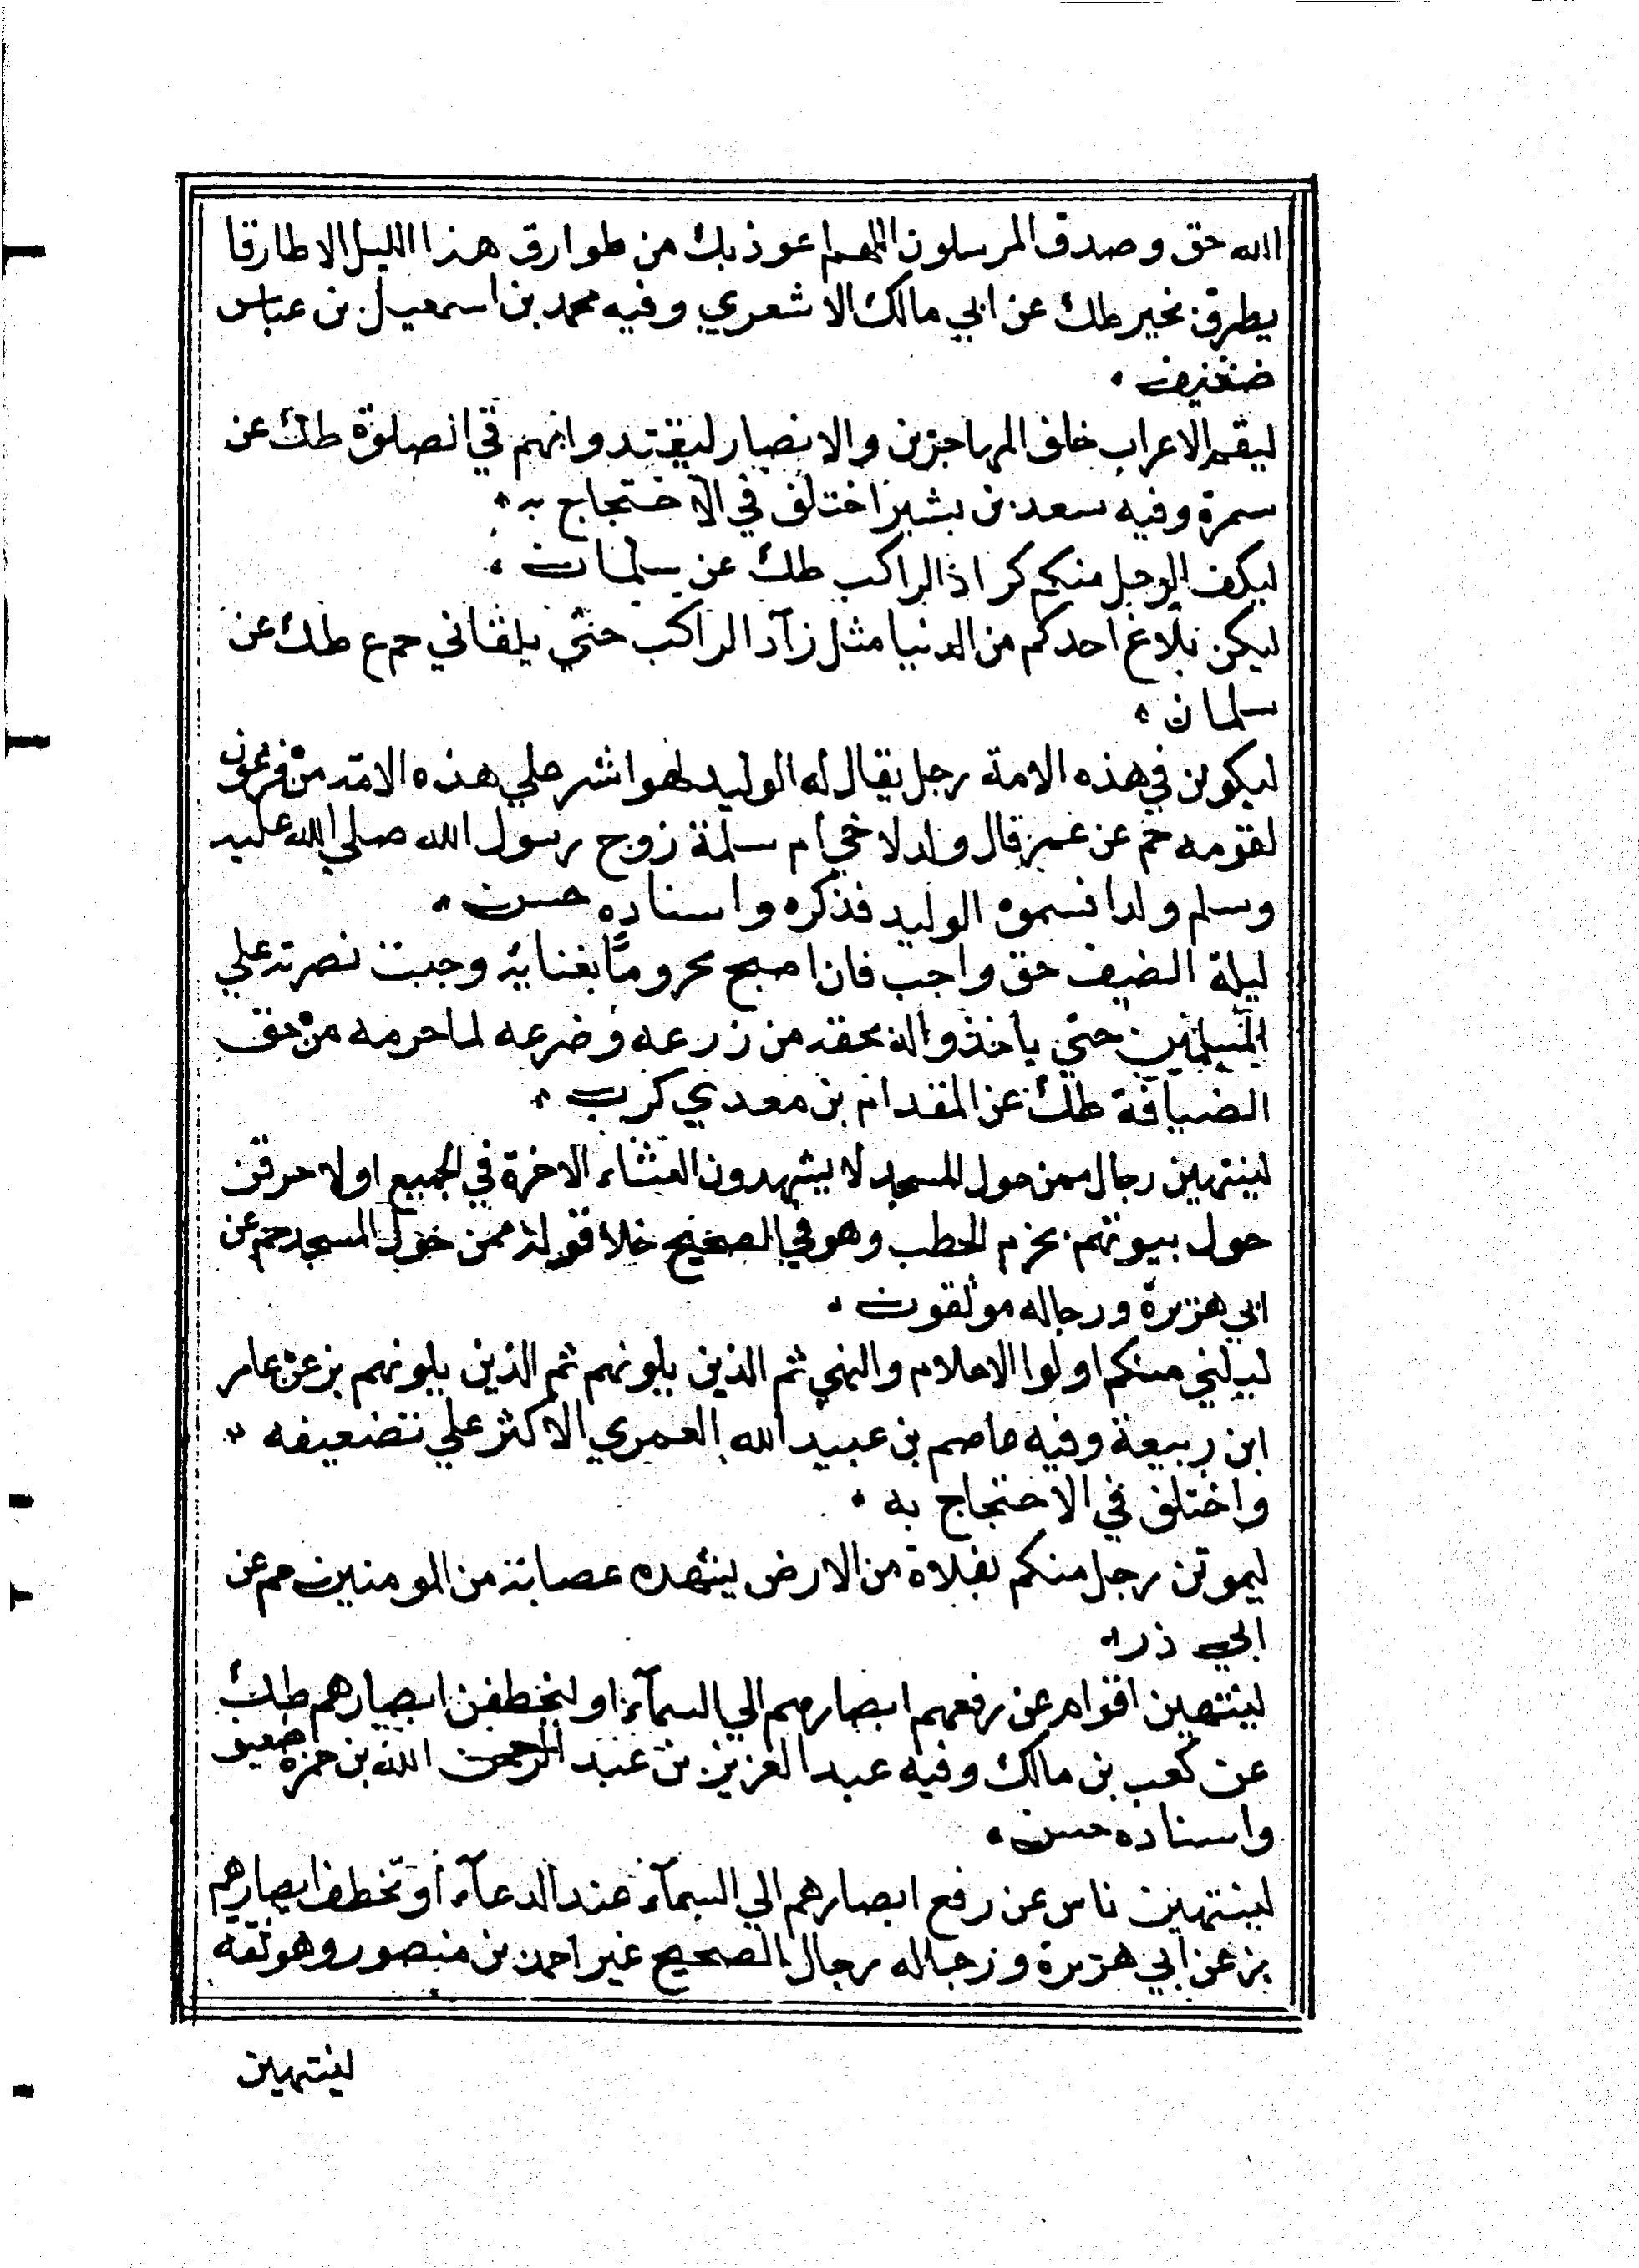 الله حق وصدق المرسلون اللهم اعوذ بك من طوارق هذا الليل الا طارقا
يطرق بخير طك عن ابي مالك الاشعري وفيه محمد بن اسمعيل بن عباس
ضعيف
ليقم الاعراب خلف المهاجرين والانصار ليقتدوا بهم في الصلوة طك عن
سمرة وفيه سعد بن بشير اختلف في الاحتجاج به
ليكف الرجل منكم كزاد الراكب طك عن سلمان
ليكن بلاغ احدكم من الدنيا مثل زاد الراكب حتي يلقاني حم ع طك عن
سلمان
ليكونن في هذه الامة رجل يقال له الوليد لهو اشر علي هذه الامة من فرعون
لقومه حم عن عمر قال ولد لاخي ام سلمة زوج رسول الله صلي الله عليه
وسلم ولدا فسموه الوليد فذكره واسناده حسن
ليلة الضيف حق واجب فان اصبح محروما بفنائه وجبت نصرته علي
المسلمين حتي ياخذوا له بحقه من زرعه وضرعه لما حرمه من حق
الضيافة طك عن المقدام بن معدي كرب
لينتهين رجال ممن حول المسجد لا يشهدون العشاء الاخرة في الجميع او لاحرقن
حول بيوتهم بحزم الحطب وهو في الصحيح خلا قوله ممن حول المسجد حم عن
ابي هريرة ورجاله موثقون
ليلني منكم اولوا الاحلام والنهي ثم الذين يلونهم ثم الذين يلونهم بز عن عامر
ابن ربيعة وفيه عاصم بن عبيد الله العمري الاكثر علي تضعيفه
واختلف في الاحتجاج به
ليموتن رجل منكم بفلاة من الارض يشهده عصابة من المومنين حم عن
ابي ذر
لينتهين اقوام عن رفعهم ابصارهم الي السمآء او لتخطفن ابصارهم طك
عن كعب بن مالك وفيه عبد العزيز بن عبد الرحمن الله بن حمزه ضعيف
واسناده حسن
لينتهين ناس عن رفع ابصارهم الي السمآء عند الدعآء او تخطف ابصارهم
بز عن ابي هريرة ورجاله رجال الصحيح غير احمد بن منصور وهو ثقه
لينتهين